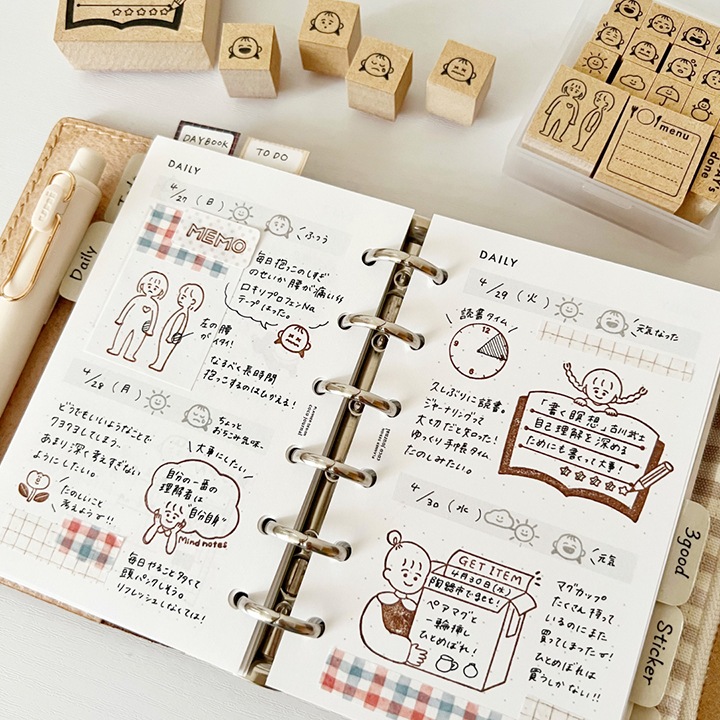 DAYBOOK
TO DO
menu
done
Daily
DAILY
4/27 (日)
ふつう
MEMO
毎日抱っこのしすぎ
のせいか腰が痛い
ロキソプロフェンNa
テープはった。
左の腰
がイタイ!
なるべく長時間
抱っこするのはひかえる!
4/28 (月)
ちょっと
おちこみ気味
どうでもいいようなことで
クヨクヨしてしまう、
あまり深く考えすぎない
ようにしたい。
大事にしたい
自分の一番の
理解者は
"自分自身"
Mind notes
たのしいこと
考えようで!!
毎日やること多くて
頭パンクしそう。
リフレッシュしなくては!
DAILY
4/29 (火)
元気なった
読書タイム
12
久しぶりに読書。
ジャーナリングって
大切だと知った!
ゆっくり手帳タイム
たのしみたい。
「書く瞑想」古川武士
自己理解を深める
ためにも書くって大事!
4/30 (水)
元気
GET ITEM
4月30日(水)
陶器市でGet!
ペアマグと
一輪挿し
ひとめぼれ!
マグカップ
たくさん持って
いるのにまた
買ってしまったで!
ひとめぼれは
買うしかない!!
3good
Sticker